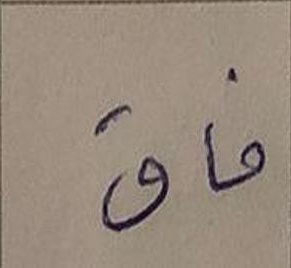 فاق